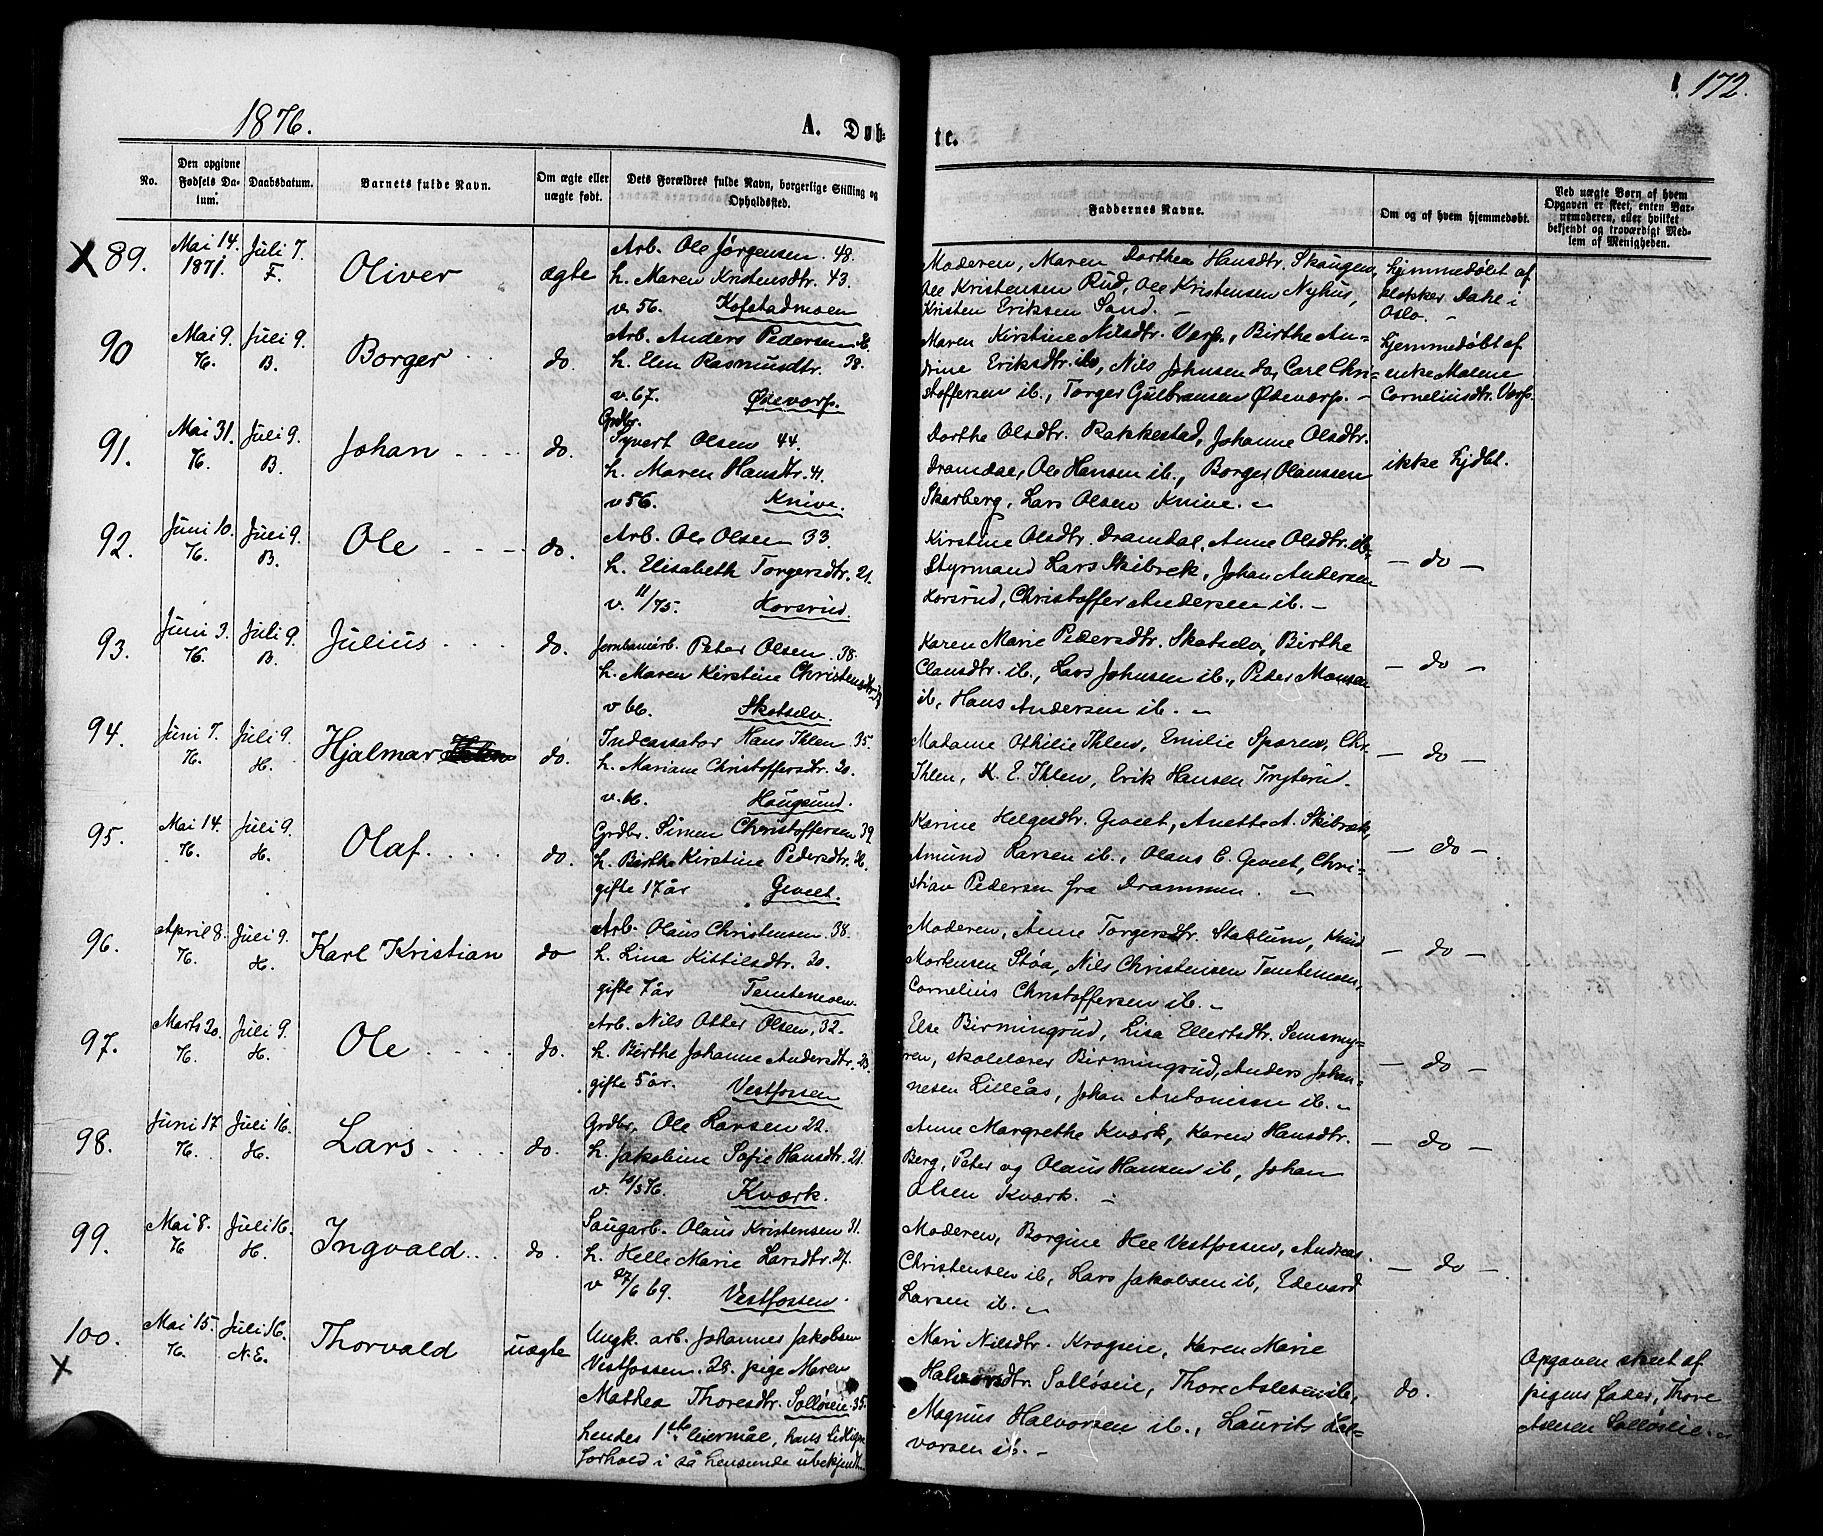 172.
1876.
A. Døb-
te.
No.
Den opgivne Fødsels Datum.
Daabsdatum.
Barnets fulde Navn.
Om ægte eller uægte født.
Dets Forældres fulde Navn, borgerlige Stilling og Opholdssted.
Faddernes Navne.
Om og af hvem hjemmedøbt.
Ved uægte Børn af hvem Opgaven er skeet, enten Barnemoderen, eller hvilket bekjendt og troværdigt Medlem af Menigheden.
X 89.
Mai 14. 1871.
Juli 7. F.
Oliver
ægte
Arb. Ole Jørgensen 48.
h. Maren Kristensdtr. 43.
v. 56. Kofstadmoen
Moderen, Maren Dorthea Hansdtr. Skaugen,
Ole Kristensen Rud, Ole Kristensen Nyhus,
Kristen Eriksen Sand. -
hjemmedøbt af
klokker Dahl i
Oslo. -
90
Mai 9. H.
Juli 9. B.
Borger
do.
Arb. Anders Pedersen
h. Elen Rasmusdtr. 38.
v. 67. Ødevorp.
Maren Kirstine Nilsdtr. Vorp., Birthe An-
drine Eriksdtr. ib., Nils Johnsen do, Carl Chri-
stoffersen ib., Torger Gulbransen Ødevorp. -
hjemmedøbt af
enke Malene
Corneliusdtr. Vorp.
91.
Mai 31. H.
Juli 9. B.
Johan
do.
Grdbr.
Syvert Olsen 44.
h. Maren Hansdtr. 41.
v 56. Knive.
Dorthe Olsdtr. Rakkestad, Johanne Olsdtr.
Dramdal, Ole Hansen ib., Borger Olaussen
Skarberg, Lars Olsen Knive. -
ikke hjdbt.
92.
Juni 10. H.
Juli 9. B.
Ole
do.
Arb. Ole Olsen 33.
h. Elisabeth Torgersdtr. 21.
v. 11/75. Korsrud.
Kirstine Olsdtr. Dramdal, Anne Olsdtr. ib.
Styrmand Lars Skibrek, Johan Andersen
Korsrud, Christoffer Andersen ib. -
- do -
93.
Juni 3. H.
Juli 9. B.
Julius
do.
Jernbanearb. Peter Olsen 38.
h. Maren Kirstine Christensdtr.
v 66. Skotselv.
Karen Marie Pedersdtr. Skotselv, Birthe
Clausdtr. ib., Lars Johnsen ib., Peter Monsen
ib, Hans Andersen ib. -
- do -
94.
Juni 7. H.
Juli 9. H.
Hjalmar
do.
Indcassator Hans Ihlen 35.
h. Mariane Christoffersdtr. 30.
v. 66. Hougsund.
Madame Othilie Ihlen, Emilie Sporen, Chr.
Ihlen, K. E. Ihlen, Erik Hansen Tryterud
- do -
95.
Mai 14. H.
Juli 9. H.
Olaf.
do.
Grdbr. Simen Christoffersen 39
h. Birthe Kirstine Pedersdtr. 36.
gifte 17 år Geveet.
Karine Helgesdtr. Geveet, Anette A. Skibrek,
Amund Larsen ib., Olaus C. Geveet, Chri-
stian Pedersen fra Drammen. -
- do -
96.
April 8. H.
Juli 9. H.
Karl Kristian
do
Arb. Olaus Christensen 38.
h. Lina Kittilsdtr. 30.
gifte 7 år Temtemoen.
Moderen, Anne Torgersdtr. Stablum, Knud
Mortensen Støa, Nils Christensen Temtemoen,
Cornelius Christoffersen ib. -
- do -
97.
Marts 20. H.
Juli 9. H.
Ole
do.
Arb. Nils Otter Olsen, 32.
h. Berthe Johanne Andersdtr. 23.
gifte 5 år. Vestfossen
Else Birmingrud, Lisa Ellertsdtr. Semsmy-
ren, skolelærer Birmingrud, Anders Johan-
nesen Lilleås, Johan Antonissen ib. -
- do -
98.
Juni 17 H.
Juli 16. H.
Lars
do.
Grdbr. Ole Larsen 22.
h. Jakobine Sofie Hansdtr. 21.
v. 10/3 76. Kværk.
Anne Margrethe Kværk, Karen Hansdtr.
Berg, Peter og Olaus Hansen ib, Johan
Olsen Kværk. -
- do -
99.
Mai 8. H
Juli 16. H.
Ingvald
do.
Saugarb. Olaus Kristensen 31.
h. Helle Marie Larsdtr. 27.
v 27/6 69. Vestfossen.
Moderen, Borgine Hee Vestfossen, Andreas
Christensen ib, Lars Jakobsen ib, Edevard
Larsen ib. -
- do -
100.
X
Mai 15. H.
Juli 16. N.E.
Thorvald
uægte
Ungk. arb. Johannes Jakobsen
Vestfossen 28. pige Maren
Mathea Thoresdtr. Solløseie 35.
hendes 1ste leiermål, hans tidligere
forhold i så henseende ubekjendt.
Mari Nilsdtr. Krogseie, Karen Marie
Halvorsdtr. Solløseie, Thore Aslesen ib,
Magnus Halvorsen ib., Laurits Hal-
vorsen ib. -
do.
Opgaven skeet af
pigens fader, Thore
Aslesen Solløseie. -